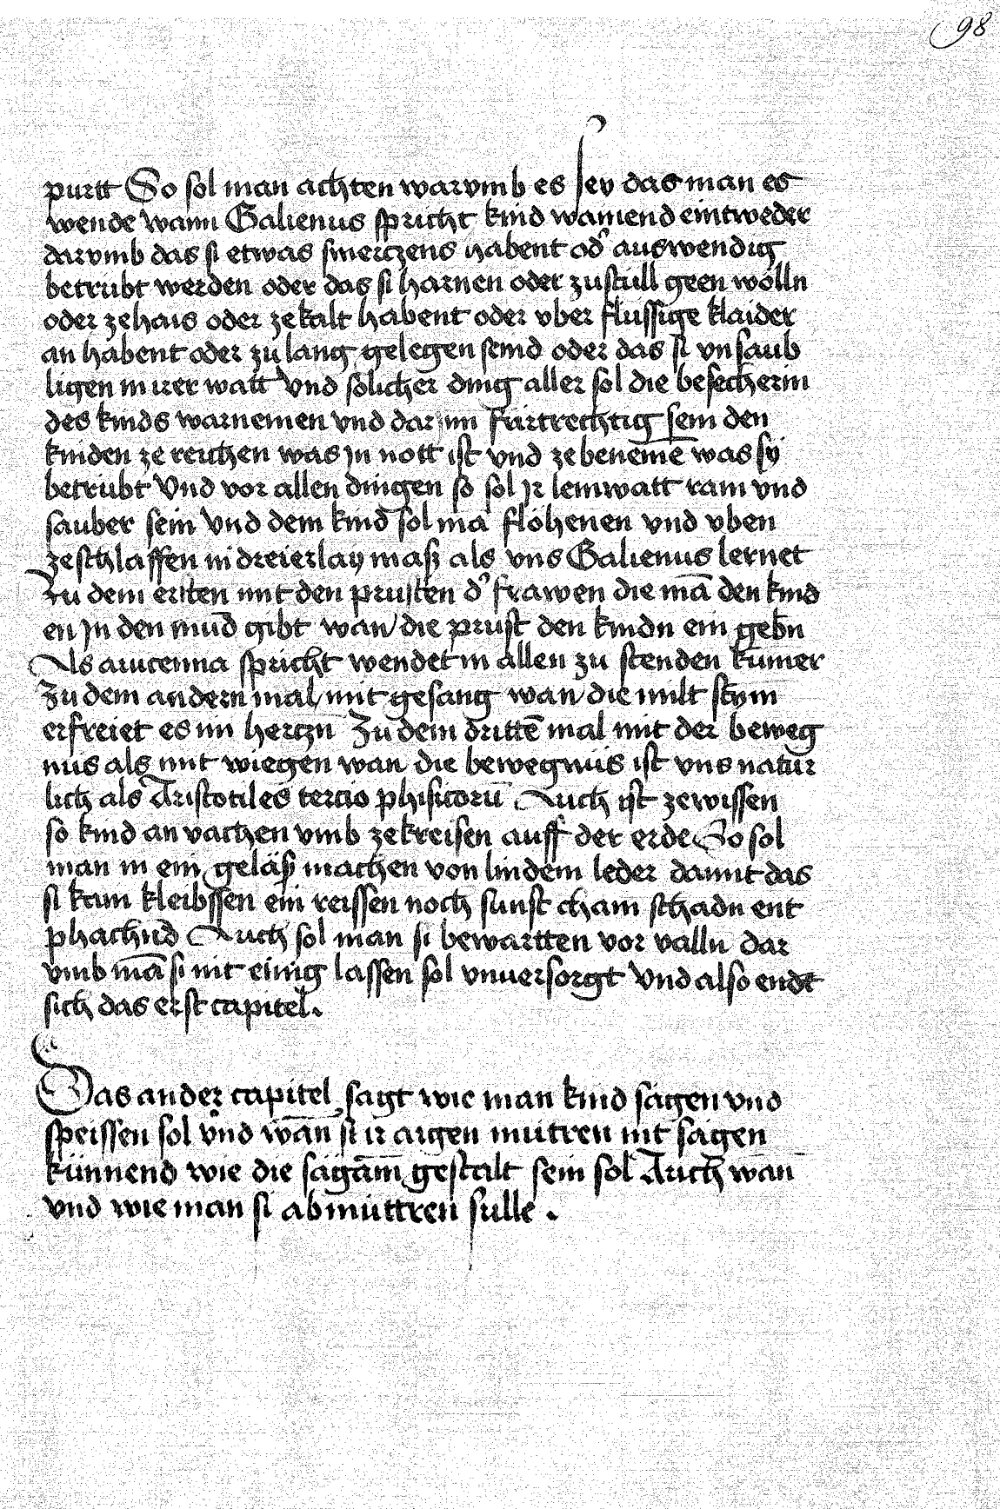 98
purtt So sol man achten warumb es sey das man es
wende wann Galienus spricht kind wainend eintweder
darumb das si etwas smerczens habent od' auswendig
betrübt werden oder das si harnen oder zu stüll geen wölln
oder ze hais oder ze kalt habent oder vber flüssige klaider
an habent oder zu lang gelegen seind oder das si vnsaub
ligen in irer watt Vnd solicher ding aller sol die besecherin
des kinds warnemen vnd dar jnn fürtrechtig sein den
kinden ze reichen was jn nott ist vnd ze benemē was sÿ
betrübt Vnd vor allen dingen so sol jr leinwatt rain vnd
sauber sein Vnd dem kind sol mā flöhenen vnd vben
ze schlaffen in dreierlay maß als vns Galienus lernet
Zu dem ersten mit den prusten d' frawen die mā den kind
en jn den mūd gibt wan die prust den kindn ein gebn̄
Als avicenna spricht wendet in allen zu stenden kumer
Zu dem andern mal mit gesang wan die milt stym
erfreiet es im herczn̄ Zu dem drittē mal mit der beweg
nüs als mit wiegen wan die bewegnüs ist vns natür
lich als Aristotiles tercio phisicorū Auch ist ze wissen
so kind an vachen vmb ze kreisen auff der erde So sol
man in ein geläß machen von lindem leder damit das
si kain kleibssen ein reissen noch sunst cham schadn ent
phachnd̄ Auch sol man si bewartten vor valln dar
vmb mā si nit einig lassen sol vnuersorgt Vnd also endt
sich das erst capitel.
Das ander capitel sagt wie man kind sägen vnd
speissen sol vnd wān si ir aigen mutren nit sägen
künnend wie die sägām gestalt sein sol Auch wan̄
vnd wie man si abmüttren sulle .